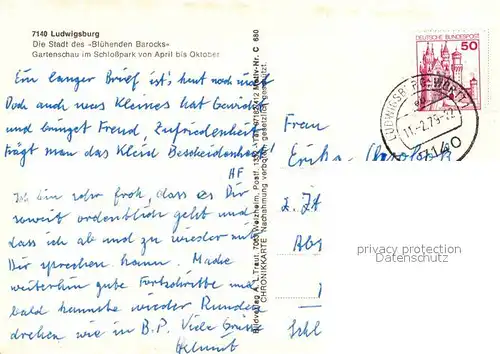 7140 Ludwigsburg
Die Stadt des »Blühenden Barocks«
Gartenschau im Schloßpark von April bis Oktober
Ein langer Brief ist's heut noch nicht
Doch auch was Kleines hat Gewicht
und bringet Freud, Zufriedenheit
trägt man das Kleid Bescheidenheit
HF
Ich bin sehr froh, dass es Dir
soweit ordentlich geht und
dass ich ab und zu wieder mit
Dir sprechen kann. Mache
weiterhin gute Fortschritte und
bald kannste wieder Runden
drehen wie in B.P. Viele Grüsse
Helmut
Bildverlag A. L. Traut, 7063 Welzheim, Postf.
CHRONIKKARTE Nachahmung verboten, gesetzlich geschützt.
Motiv-Nr. C 680
DEUTSCHE BUNDESPOST
50
7140
Frau
Erika
z. Zt
privacy protection
AnsichtskartenCenter